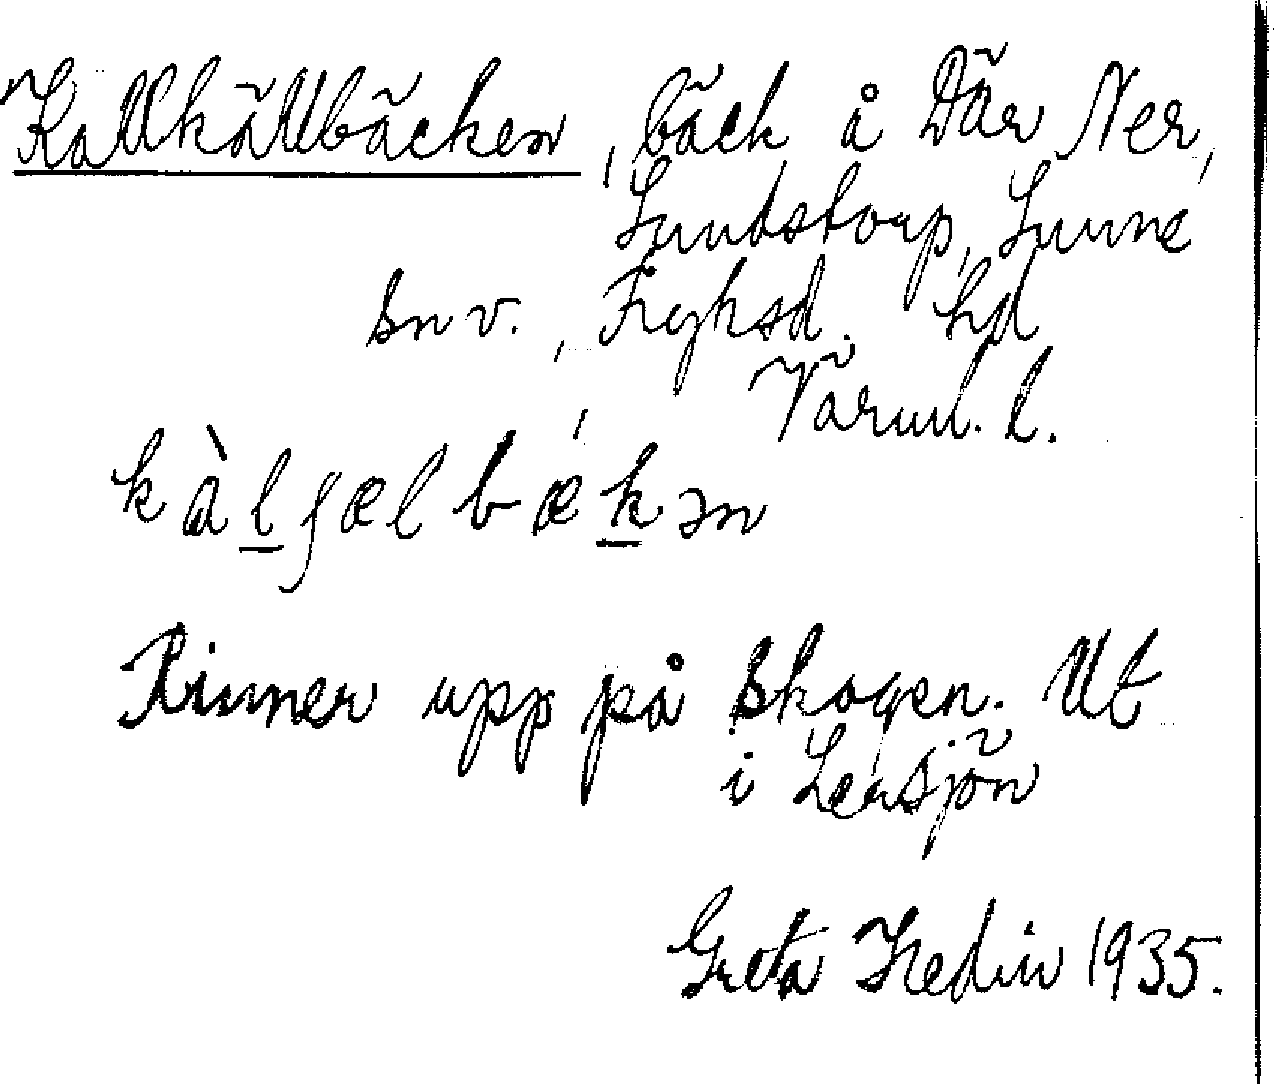 Kallkällbäcken, bäck å Där Ner,
Lundstorp, Sunne
sn v., Fryksd. hd
Värml. l.
kàlʃælbækən
Rinner upp på skogen. Ut
i Lersjön
Greta Hedin 1935.